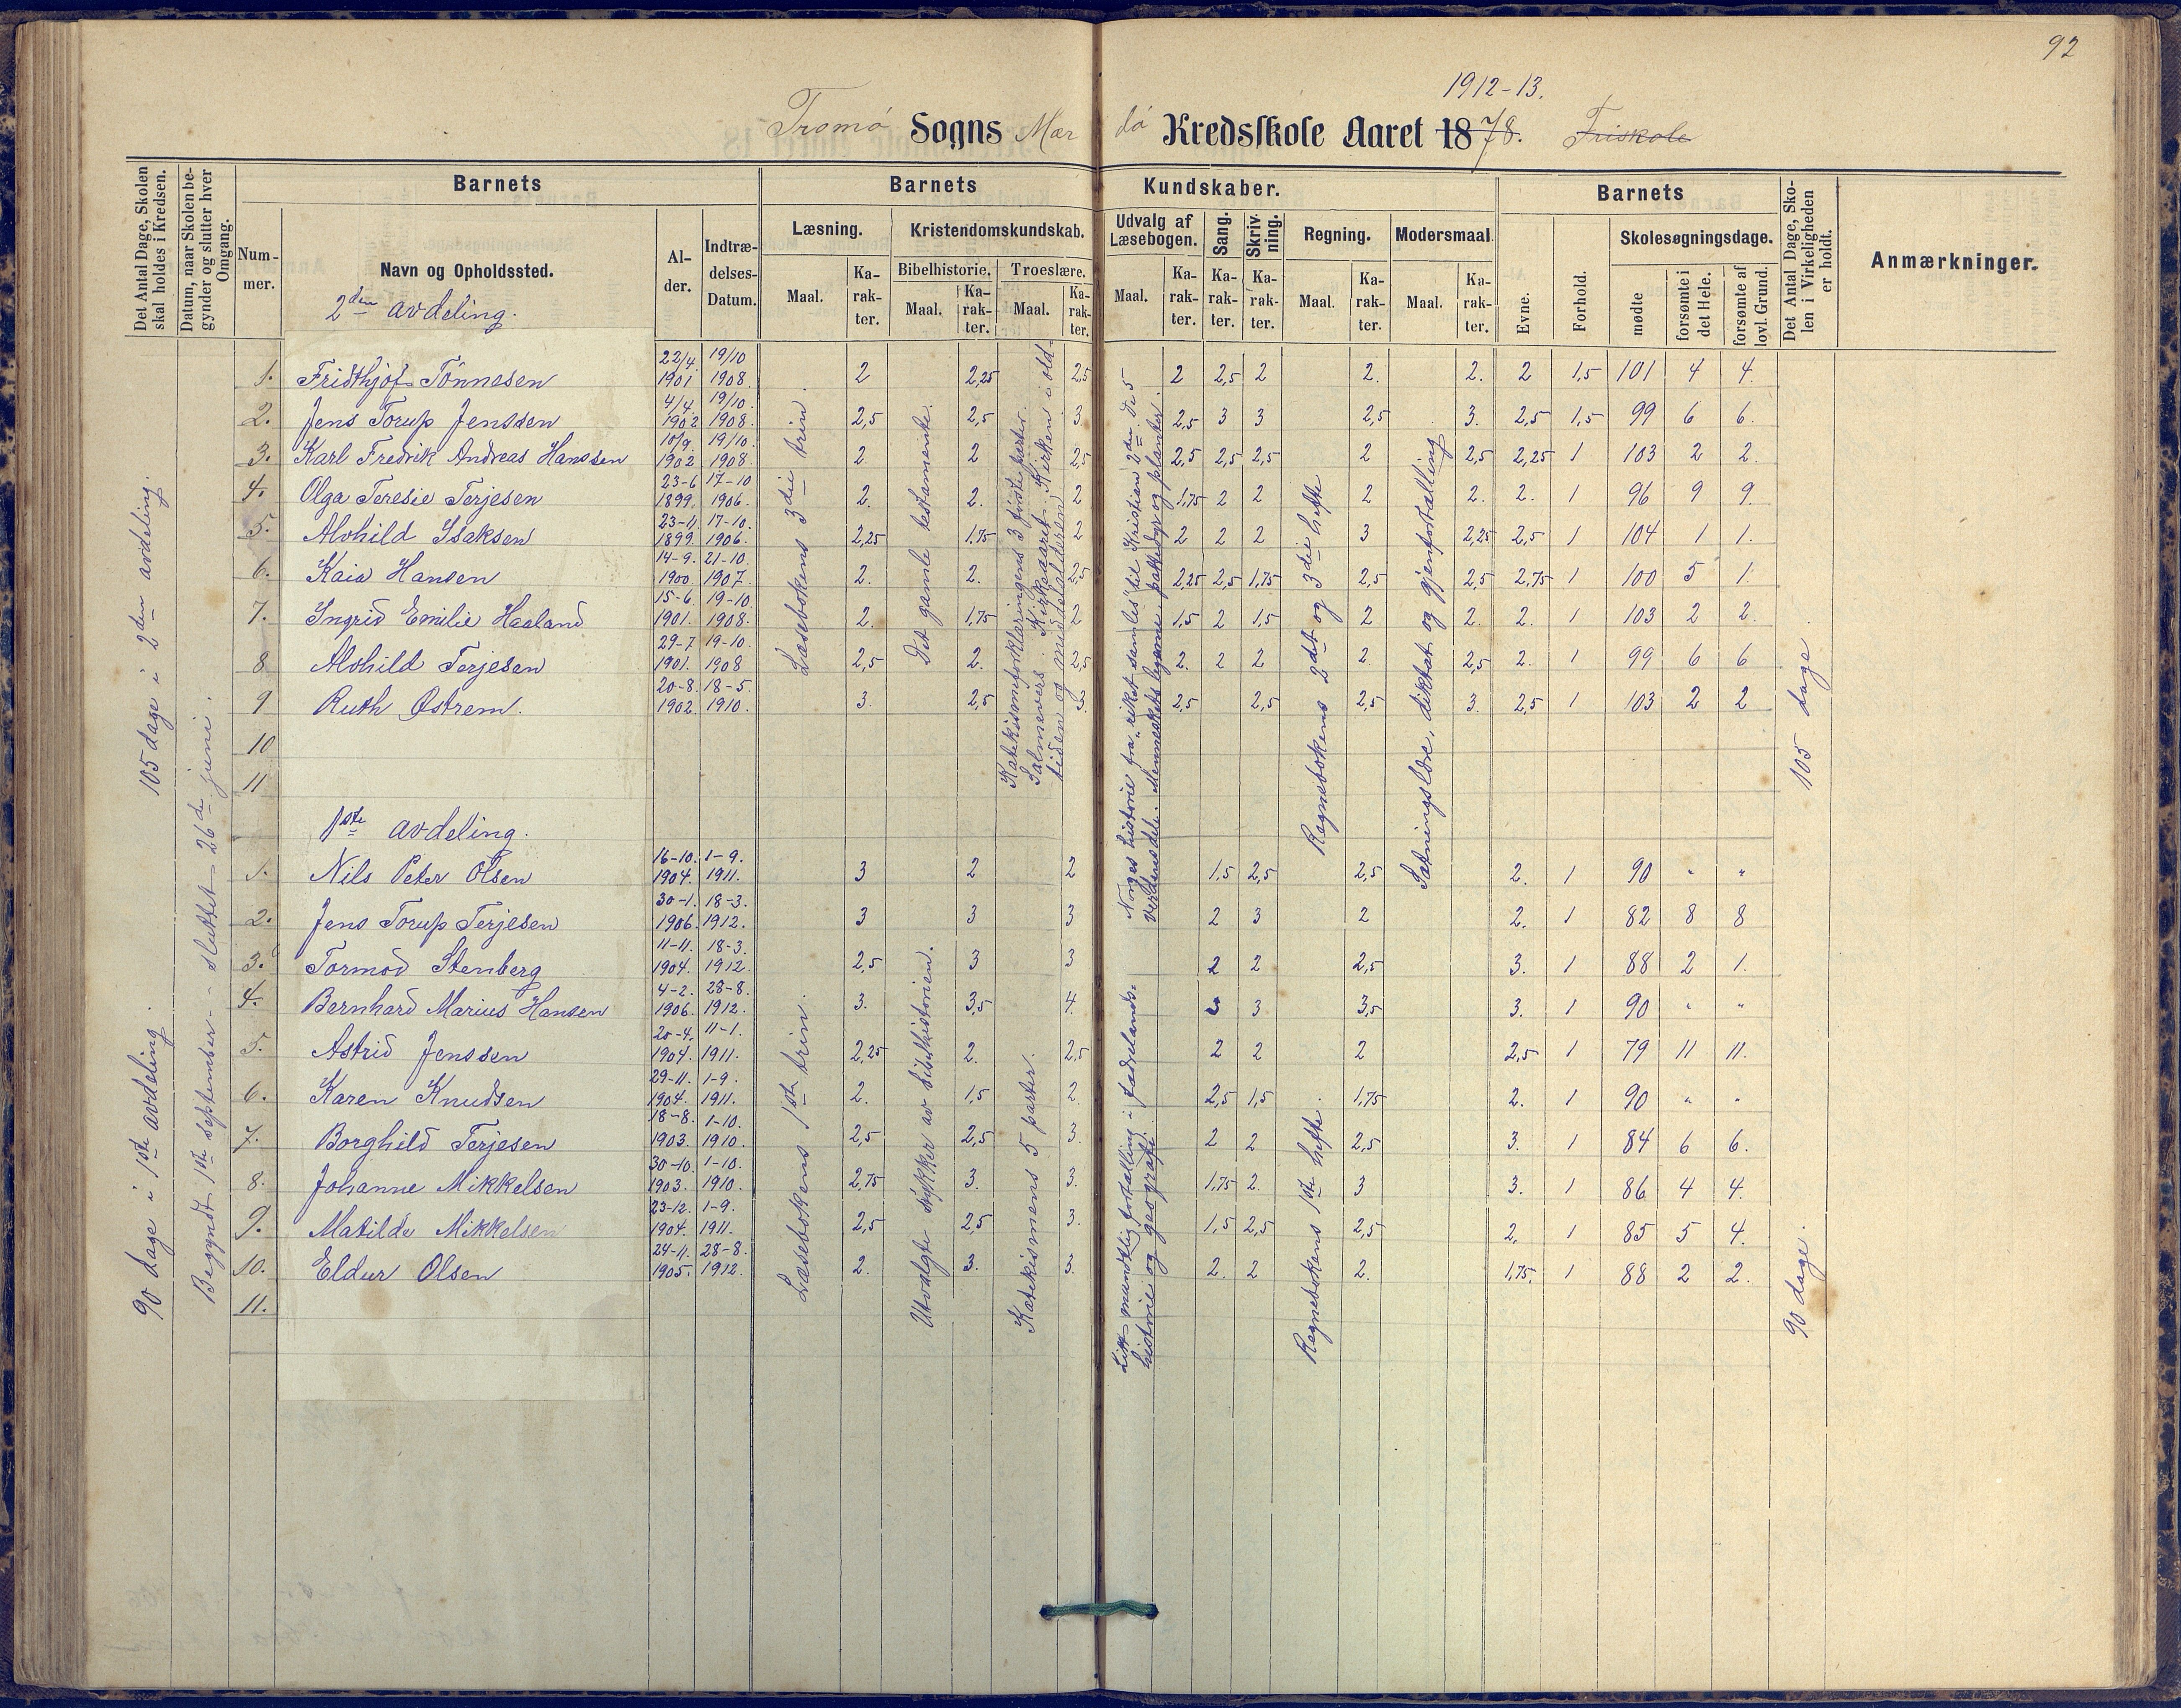 92
1912-13.
Tromö Sogns Mær dö Kredsskole Aaret 1878. Friskole
Det Antal Dage, Skolen skal holdes i Kredsen.
Datum, naar Skolen begynder og slutter hver Omgang.
Barnets
Barnets Kundskaber.
Barnets
Det Antal Dage, Skolen i Virkeligheden er holdt.
Anmærkninger.
Nummer.
Navn og Opholdssted.
Alder.
Indtrædelses-Datum.
Læsning.
Kristendomskundskab.
Udvalg af Læsebogen.
Sang.
Skrivning.
Regning.
Modersmaal.
Evne.
Forhold.
Skolesøgningsdage.
Bibelhistorie.
Troeslære.
Maal. Karakter. Maal. Karakter. Maal. Karakter. Maal. Karakter. Karakter. Karakter. Maal. Karakter. Maal. Karakter.
mødte
forsømte i det Hele.
forsømte af lovl. Grund.
2den avdeling.
105 dage i 2den avdeling.
90 dage i 1ste avdeling.
Begyndt 1ste september - sluttet 26de juni.
1. Fridthjof Tönnesen 22/4 1901 19/10 1908. 2 2,25 2,5 2 2,5 2 2. 2. 2 1,5 101 4 4.
2. Jens Torup Jenssen 4/4. 1902 19/10. 1908. 2,5 2,5 3. 2,5 3 3 2,5 3. 2,5 1,5 99 6 6.
3. Karl Fredrik Andreas Hanssen 10/9. 1902 19/10. 1908. 2 2 2,5 2,5 2,5 2,5 2 2,5 2,25 1 103 2 2.
4. Olga Teresie Terjesen 23-6 1899. 17-10 1906. 2. 2. 2 1,75 2 2 2 2. 2. 1 96 9 9.
5. Alvhild Isaksen 23-11. 1899. 17-10. 1906. 2,25 1,75 2 2 2 2 3 2,25 2,5 1 104 1 1.
6. Kaia Hansen 14-9. 1900. 21-10. 1907. 2. 2. 2,5 2,25 2,5 1,75 2,5 2,5 2,75 1 100 5 1.
7. Ingrid Emilie Haaland 15-6. 1901. 19-10. 1908. 2. 1,75 2 1,5 2 1,5 2 2. 2. 1 103 2 2.
8 Alvhild Terjesen 29-7 1901. 19-10. 1908 2,5 2. 2,5 2. 2 2 2. 2,5 2. 1 99 6 6
9 Ruth Østrem. 20-8. 1902. 18-5. 1910. 3. 2,5 3. 2,5 2,5 2,5 3. 2,5 1 103 2 2
10
11
Læsebokens 3die trin
Det gamle testamente.
Katekismeforklaringens 3 förste parter.
Salmevers. Kirkeaaret. Kirken i oldtiden og middelalderen
Norges historie fra "riket samles" til Kristian 2den. De 5 verdensdele. Menneskets legeme, pattedyr og planter.
Regnebokens 2det og 3die hefte
Sætningslære, diktat og gjenfortælling
105 dage
1ste avdeling.
1. Nils Peter Olsen 16-10. 1904. 1-9. 1911. 3 2 2 1,5 2,5 2,5 2. 1 90 " "
2. Jens Torup Terjesen 30-1. 1906. 18-3. 1912. 3 3 3 2 3 2 2. 1 82 8 8
3. Tormod Stenberg 11-11. 1904. 18-3. 1912. 2,5 3 3 2 2 2,5 3. 1 88 2 1.
4. Bernhard Marius Hansen 4-2. 1906. 28-8. 1912. 3. 3,5 4. 3 3,5 3. 1 90 " "
5. Astrid Jenssen 20-4. 1904. 11-1. 1911. 2,25 2. 2,5 2 2 2 2,5 1 79 11 11.
6. Karen Knudsen 29-11. 1904. 1-9. 1911. 2. 1,5 2. 2,5 1,5 1,75 2. 1 90 " "
7. Borghild Terjesen 18-8. 1903. 1-10. 1910. 2,5 2,5 3. 2 2 2,5 3. 1 84 6 6.
8. Johanne Mikkelsen 30-10. 1903. 1-10. 1910. 2,75 3. 3. 1,75 2. 3 3. 1 86 4 4.
9. Matilde Mikkelsen 23-12. 1904. 1-9. 1911. 2,5 2,5 3. 1,5 2,5 2,5 2. 1 85 5 4.
10. Eldur Olsen 24-11. 1905. 28-8. 1912. 2. 3. 3. 2. 2 2. 1,75. 1 88 2 2.
11.
Læsebokens 1ste trin.
Utvalgte stykker av bibelhistorien.
Katekismens 5 parter.
Litt mundtlig fortælling i fædrelandshistorie og geografi.
Regnebokens 1ste hefte.
90 dage.